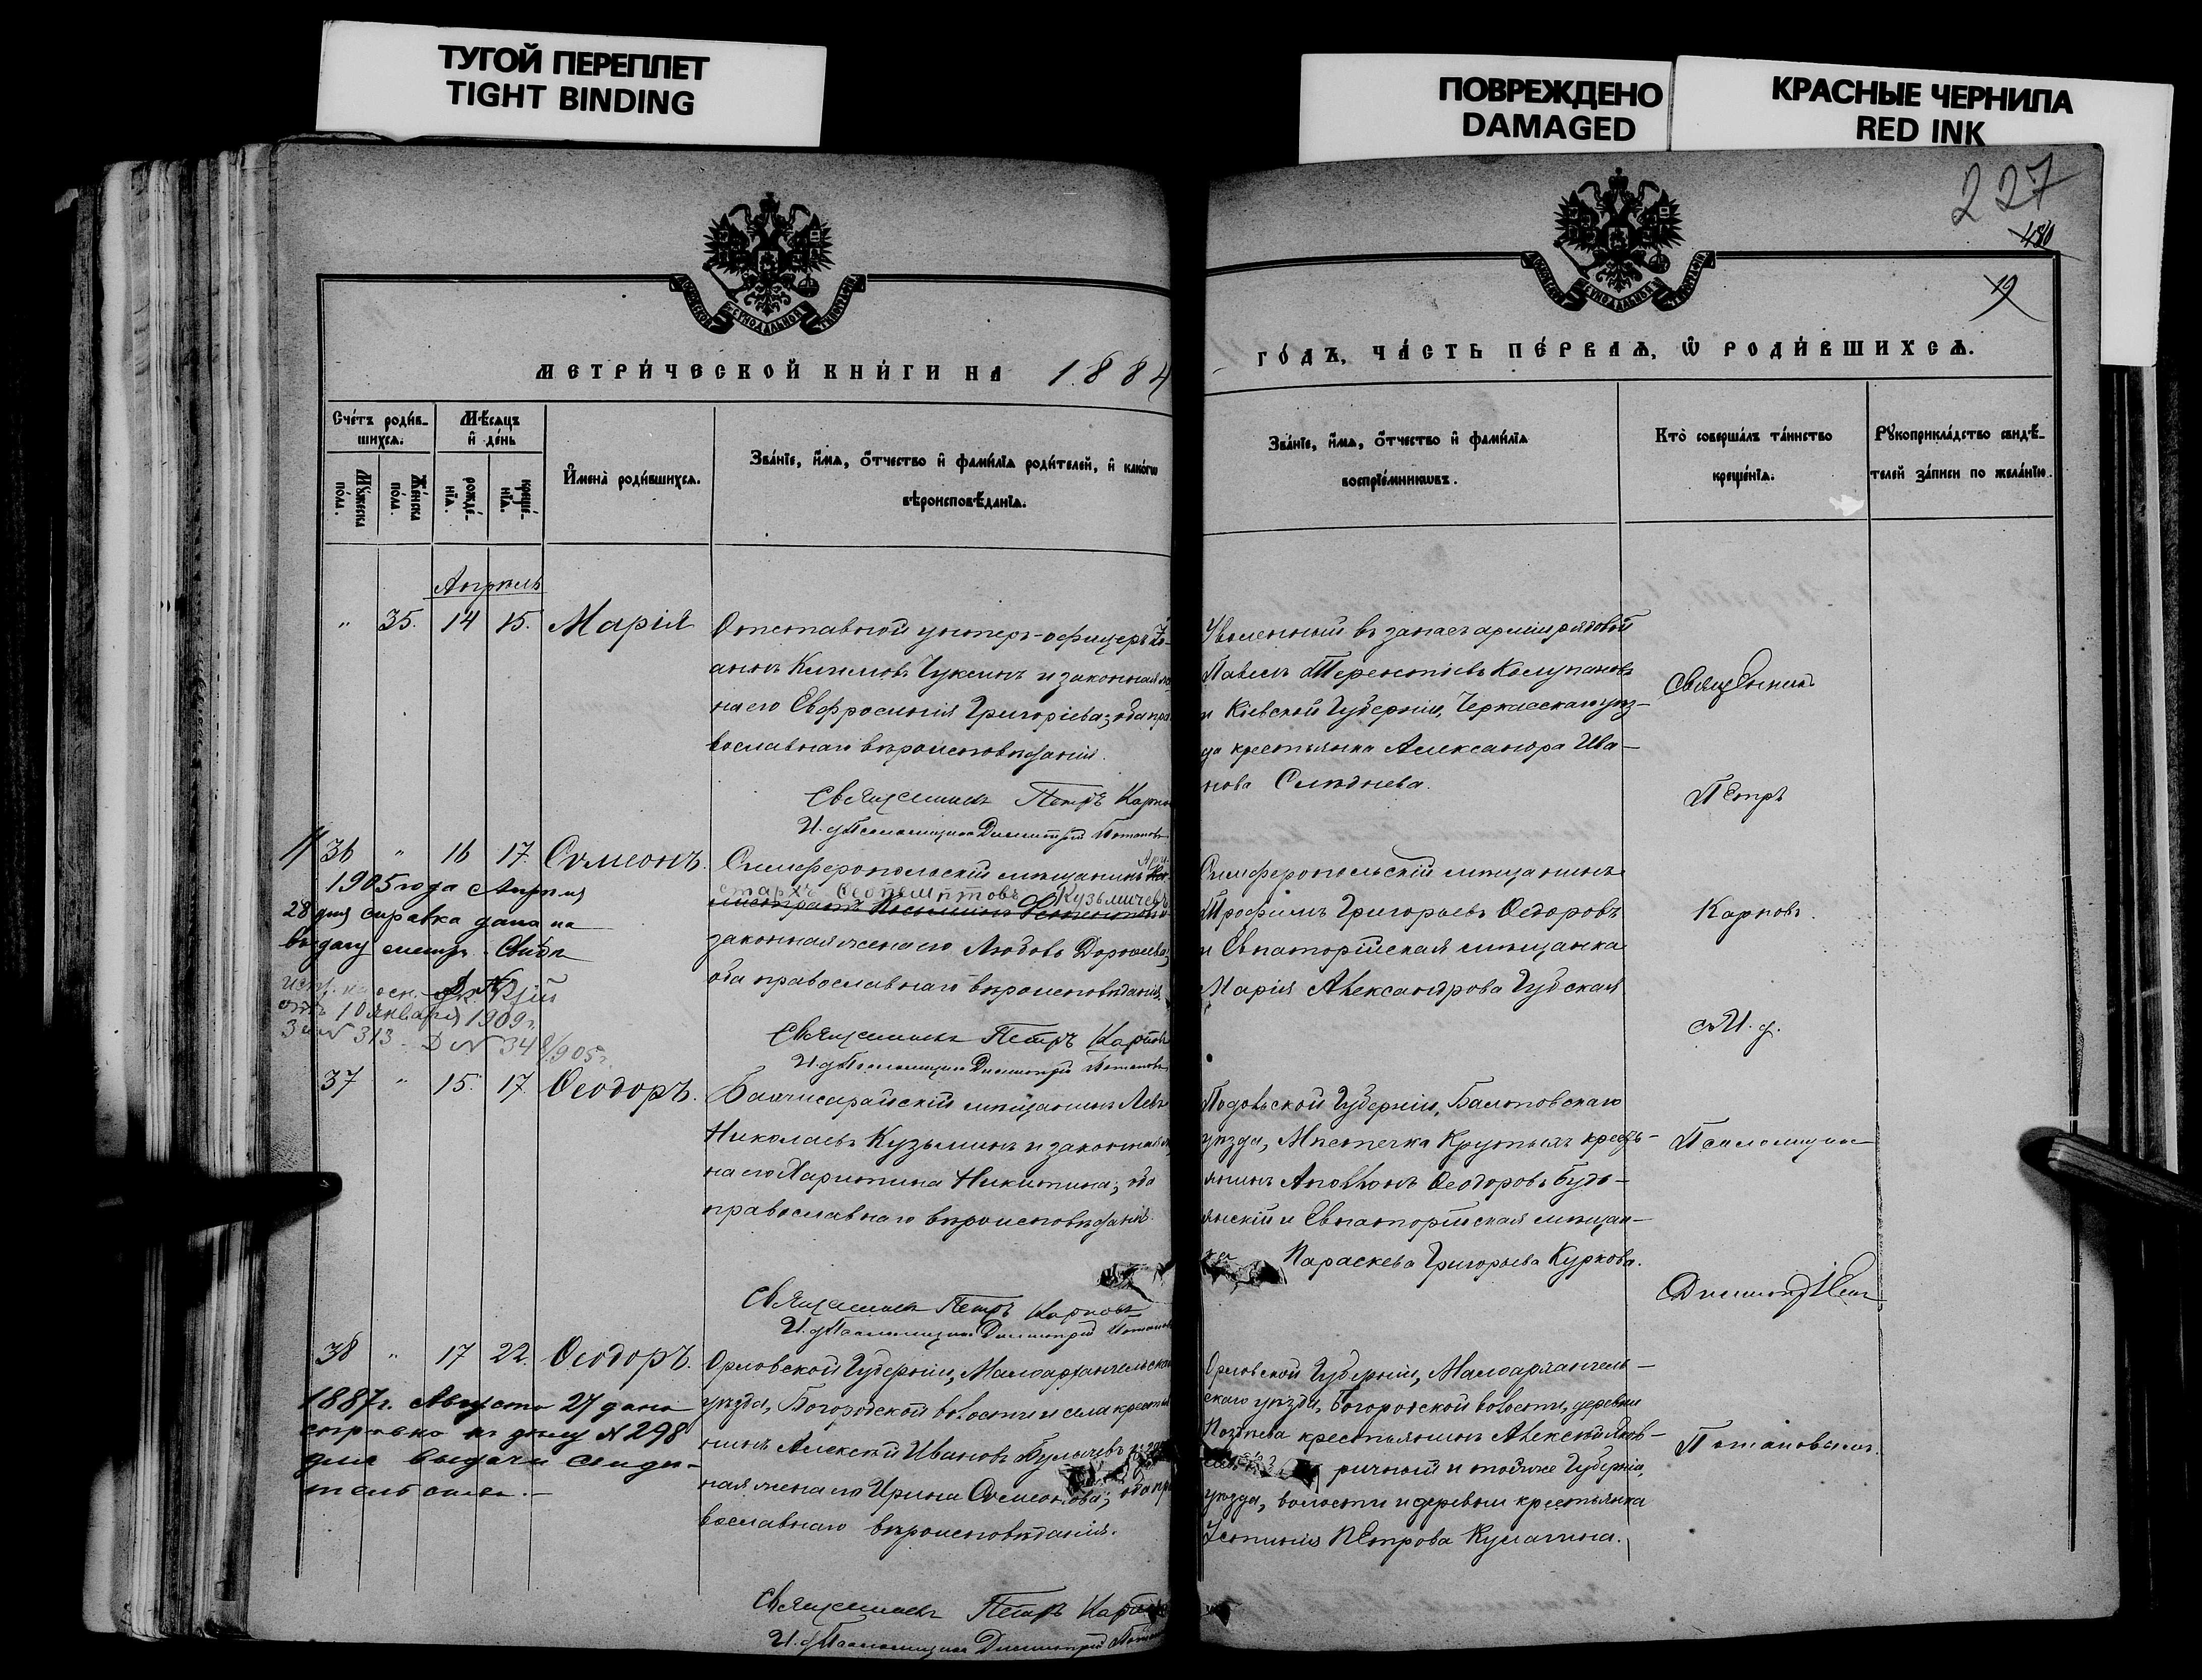 ТУГОЙ ПЕРЕПЛЕТ
TIGHT BINDING
ПОВРЕЖДЕНО
DAMAGED
КРАСНЫЕ ЧЕРНИЛА
RED INK
227
480
19
МЕТРИ́ЧЕСКОЙ КНИ́ГИ НА 1884
ГО́ДЪ, ЧА́СТЬ ПЕ́РВАѦ, Ѡ РОДИ́ВШИХСѦ.
Сче́тъ роди́в-
шихсѧ.
Мѣ́сѧцъ
и҆ де́нь
Мꙋ́жеска
по́ла.
Же́нска
по́ла.
рожде́-
нїѧ.
креще́-
нїѧ.
И҆мена̀ роди́вшихсѧ.
Зва́нїе, и҆́мѧ, ѻ҆́тчество и҆ фами́лїѧ роди́телей, и҆ како́гѡ
вѣроисповѣ́данїѧ.
Зва́нїе, и҆́мѧ, ѻ҆́тчество и҆ фами́лїѧ
воспрїе́мникѡвъ.
Кто̀ соверша́лъ та́инство
креще́нїѧ.
Рꙋкоприкла́дство свидѣ́-
телей за́писи по жела́нїю.
Апрѣль
" 35. 14 15. Марія
Отставной унтеръ-офицеръ Іо-
аннъ Климовъ Чуксинъ и законная же
на его Евфросинія Григоріева; оба пра
вославнаго вѣроисповѣданія.
Священникъ Петръ Карпо
И. д. Псаломщика Димитрій Потаповъ
Уволенный въ запасъ арміи рядовой
Павелъ Терентіевъ Колупановъ
и Кіевской Губерніи, Черкасскаго уѣз-
да крестьянка Александра Ива-
нова Слѣднева.
Священникъ
Петръ
Карповъ.
и И. д.
Псаломщика
Димитрій
Потаповъ
36 " 16 17. Сѵмеонъ.
1905 года Апрѣля
28 дня справка дана на
выдачу метр. Свид.
10 Января 1909 г.
За № 313. Д № 348/905 г.
Симферопольскій мѣщанинъ Ари-
стархъ Ѳеопемптовъ Кузьмичевъ
законная жена его Любовь Дорофеева;
оба православнаго вѣроисповѣданія.
Священникъ Петръ Карповъ
И. д. Псаломщика Димитрій Потаповъ
Симферопольскій мѣщанинъ
Трофимъ Григорьевъ Ѳедоровъ
и Евпаторійская мѣщанка
Марія Александрова Губская
37 " 15. 17. Ѳеодоръ.
Бахчисарайскій мѣщанинъ Левъ
Николаевъ Кузьминъ и законная же
на его Харитина Никитина; оба
православнаго вѣроисповѣданія.
Священникъ Петръ Карповъ
И. д. Псаломщика Димитрій Потаповъ
Подольской Губерніи, Балтовскаго
уѣзда, Мѣстечка Крутыхъ кресть-
янинъ Аполлонъ Ѳеодоровъ Будз-
янскій и Евпаторійская мѣщан-
ка Параскева Григорьева Куркова.
38 " 17 22. Ѳеодоръ.
1887 г. Августа 27 дана
справка къ дѣлу № 298
для выдачи свидѣ-
тельства.-
Орловской Губерніи, Малоархангельскаго
уѣзда, Богородской волости и села кресть
янинъ Алексѣй Ивановъ Булычевъ и
ная жена его Ирина Сѵмеонова; оба пра
вославнаго вѣроисповѣданія.
Священникъ Петръ Карповъ
И. д. Псаломщика Димитрій Потаповъ
Орловской Губерніи, Малоархангель-
скаго уѣзда, Богородской волости, деревни
крестьянинъ Алексѣй Яков-
и тойже Губерніи,
уѣзда, волости и деревни крестьянка
Іустинія Петрова Кулагина.